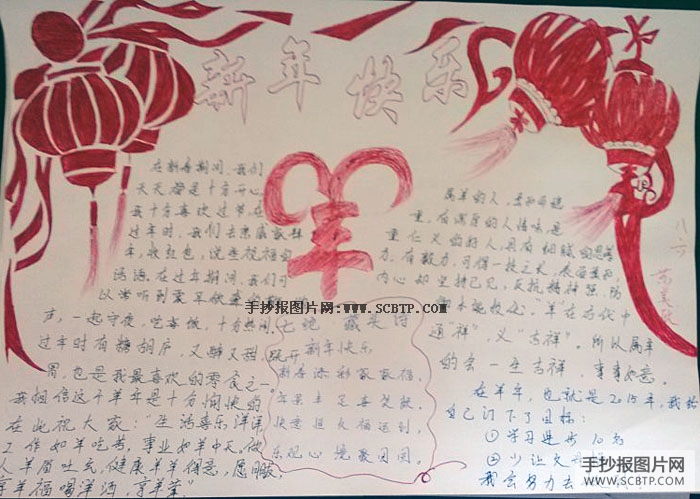 新年快乐
羊
在新春期间,我们
天天都是十分开心,
我十分喜欢过节,在
过年时,我们去亲戚家拜
年,收红包,说些祝福的
话语。在过年期间,我们可
以常听到
声,一起守夜,吃年夜饭,十分热闹
过年时有糖葫芦,又酸又甜,
胃,也是我最喜欢的零食之一。
我相信这个羊年是十分愉快的。
在此祝大家:生活喜乐洋洋
工作如羊吃草,事业如羊中天,做
人羊眉吐气,健康羊羊得意,愿
享羊福喝洋酒,
七绝 藏头诗
新年快乐
新春添彩家家福,
年景丰足喜
快意恒久福运到,
乐观心境聚团圆。
属羊的人,
重,有深厚的人情味,是
重仁义的
力,有毅力,可得一技之长,表面柔和
内心却坚持己见,反抗精神强,防
御本能较佳;"羊"在古代中
通"祥",又"吉祥",所以属羊
的会一生吉祥,事事如意。
在羊年,也就是2015年,我给
自己订下了目标:
①学习进步10名
②少让父母
我会努力去
八六
手抄报图片网:www.SCBTP.com
手抄报图片网
WWW.SCBTP.COM